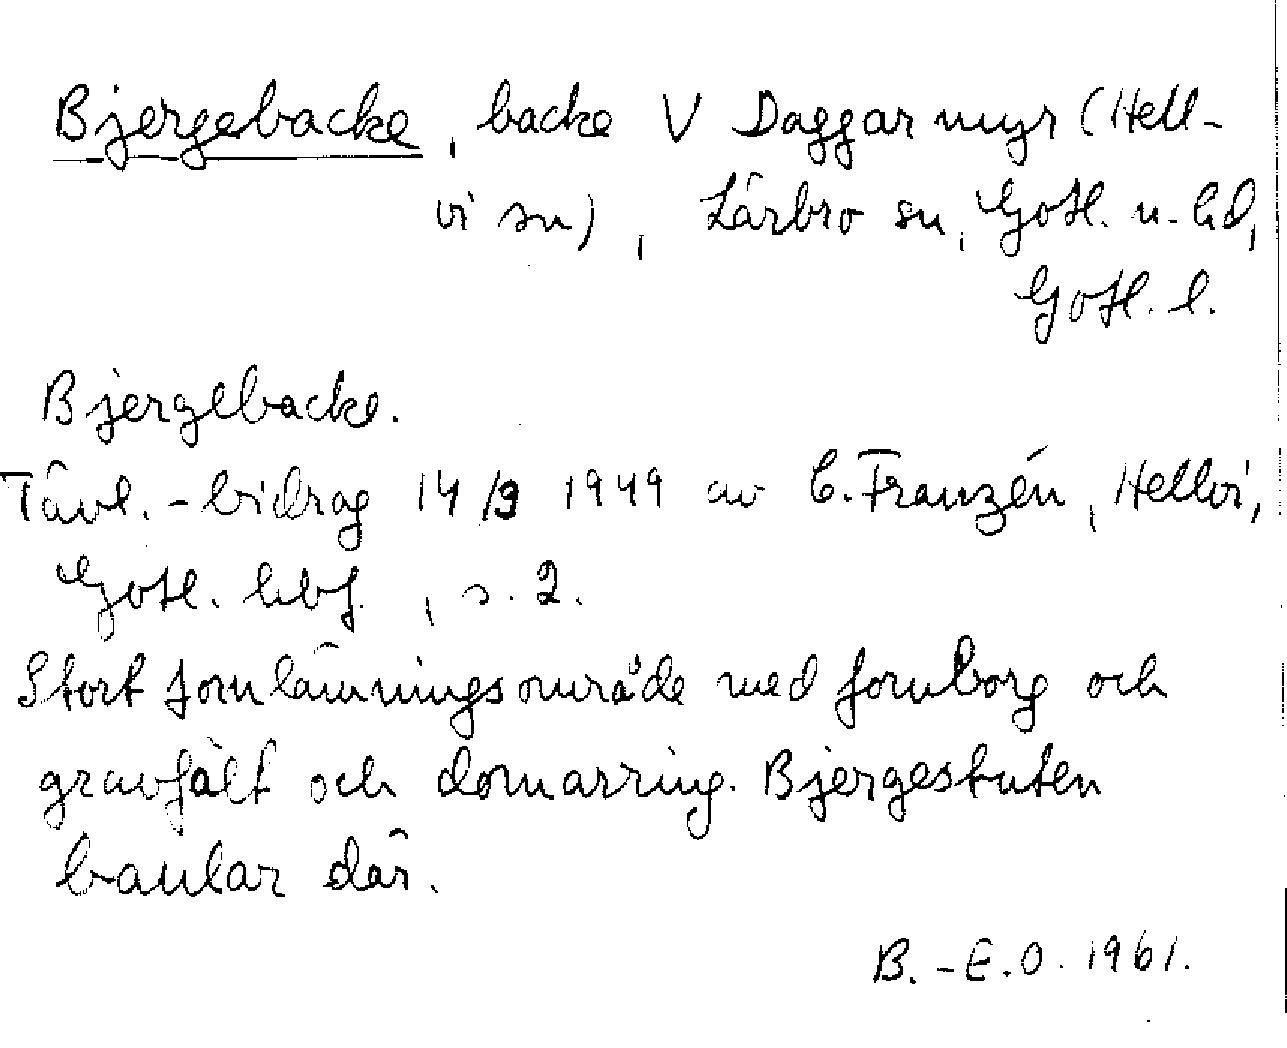 Bjergebacke, backe V Daggar myr (Hell-
vi sn), Lärbro sn, Gotl. n. hd,
Gotl. l.
Bjergebacke.
Tävl.-bidrag 14/9 1949 av C. Franzén, Hellvi,
Gotl. hbf., s. 2.
Stort fornlämningsområde med fornborg och
gravfält och domarring. Bjergestuten
baular där.
B.-E.O. 1961.